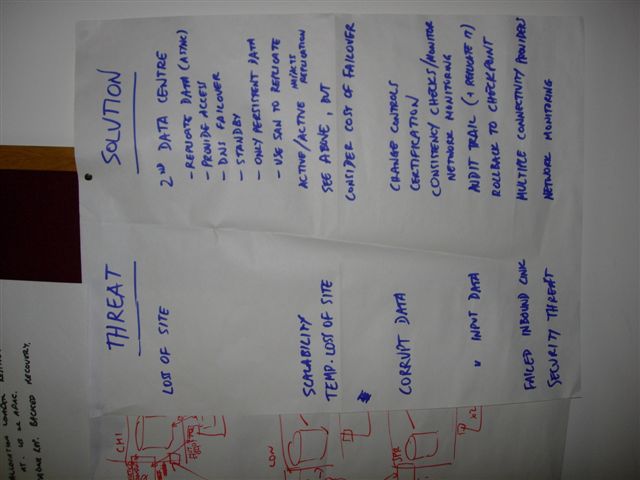 THREAT
SOLUTION
LOSS OF SITE
2ND DATA CENTRE
- REPLICATE DATA (ASYNC)
- PROVIDE ACCESS
- DNS FAILOVER
- STANDBY
- ONLY PERSISTENT DATA
- USE SAN TO REPLICATE
SCALABILITY
ACTIVE/ACTIVE IMPACTS REPLICATION
TEMP. LOSS OF SITE
SEE ABOVE, BUT
CONSIDER COST OF FAILOVER
CORRUPT DATA
CHANGE CONTROLS
CERTIFICATION
CONSISTENCY CHECKS/MONITOR
NETWORK MONITORING
" INPUT DATA
AUDIT TRAIL (+ REPLICATE IT)
ROLLBACK TO CHECKPOINT
FAILED INBOUND LINK
MULTIPLE CONNECTIVITY PROVIDERS
SECURITY THREAT
NETWORK MONITORING
LONDON
AT. US
APAC.
BACKED RECOVERY.
CHI
LON